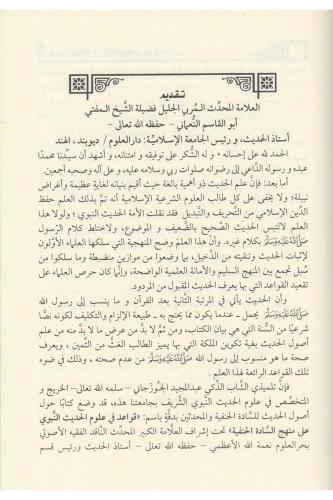 تقديم
العلامة المحدّث المربي الجليل فضيلة الشيخ المفتي
أبو القاسم النُّعماني – حفظه الله تعالى –
أستاذ الحديث، و رئيس الجامعة الإسلاميّة: دارالعلوم / ديوبند، الهند
الحمد لله على إحسانه، و له الشكر على توفيقه و امتنانه، و أشهد أن سيّدنا محمدًا
عبده و رسوله الداعي إلى رضوانه صلوات ربي وسلامه عليه، و على آله و صحبه أجمعين.
أما بعد: فإنّ علم الحديث ذو أهمية بالغة حيث أقيم بنيانه لغايةٍ عظيمة وأغراض
نبيلة؛ ولا يخفى على كل طالب العلوم الشرعية الإسلامية أنه تمّ بذلك العلم حفظ
الدّين الإسلامي من التّحريف والتّبديل فقد نقلت الأمة الحديث النبوي، ولولا هذا
العلم لالتبس الحديث الصّحيح بالضّعيف و الموضوع، ولاختلط كلام الرّسول
ﷺ بكلام غيره. وأن هذا العلم وضح المنهجية التي سلكها العلماء الأوّلون
لإثبات الحديث وتنقيته من الدّخيل، بما وضعوا من موازين منضبطة وما سلكوا من
سُبل تجمع بين المنهج السليم والأمانة العلمية الواضحة، وإنّما كان حرص العلماء على
تقعيد القواعد التي بها يعرف الحديث المقبول من المردود.
وأن الحديث يأتي في المرتبة الثّانية بعد القرآن و ما ينسب إلى رسول الله
ﷺ يحمل – عندما يكون مما يحتج به – طبيعة الإلزام والتكليف لكونه نصًّا
شرعيًّا من السُّنة التي هي بيان الكتاب، ومن ثَمّ لا بدَّ من عرض ما لا بدّ منه من علم
أصول الحديث بغية تكوين الملكة التي بها يميز الطالب الغث من الثّمين، ويعرف
صحة ما هو منسوب إلى رسول الله ﷺ من عدم صحته، وذلك في ضوء
تلك القواعد الرائعة لهذا العلم.
فإنّ تلميذي الشّاب الذّكي عبدالمجيد الجوزجاني – سلمه الله تعالى– الخريج و
المتخصّص في علوم الحديث النّبوي الشّريف بجامعتنا هذه، قد وضع كتابًا حول
أصول الحديث للسّادة الحنفية والمحدثين بدقّة باسم: «قواعد في علوم الحديث النّبوي
على منهج السّادة الحنفية» تحت إشراف العلّامة الكبير المحدّث النّاقد الفقيه الأصولي
بحرالعلوم نعمة الله الأعظمي – حفظه الله تعالى – أستاذ الحديث ورئيس قسم